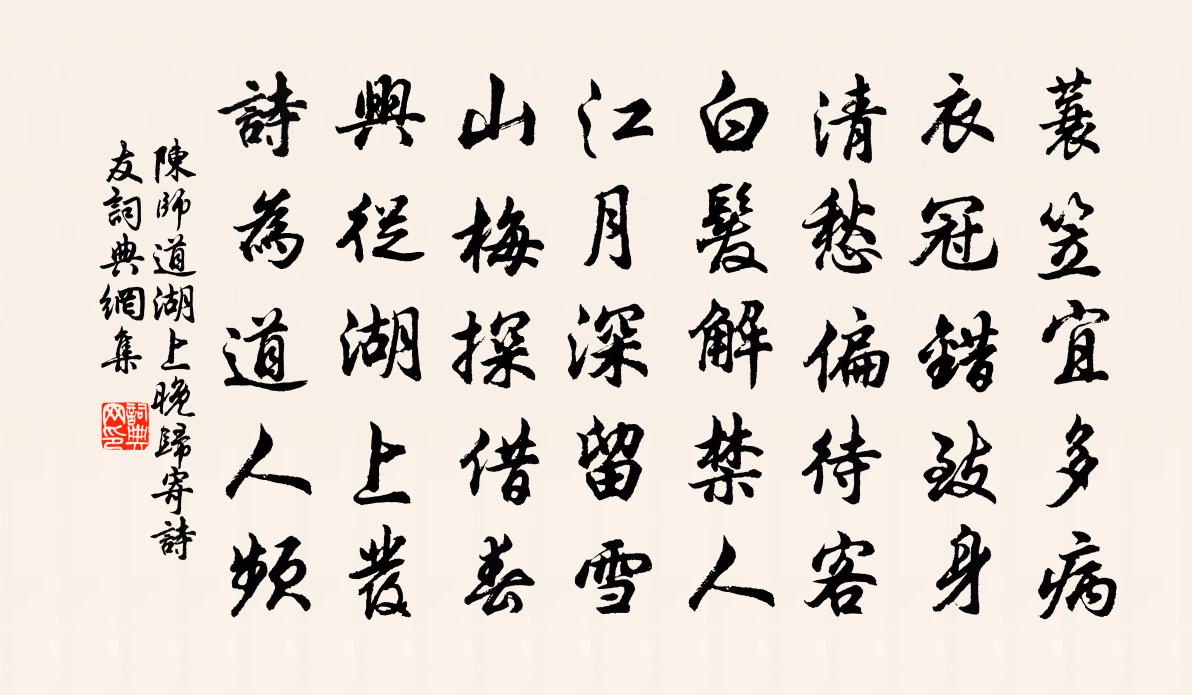 蓑笠宜多病
衣冠錯致身
清愁偏待客
白髮解禁人
江月深留雪
山梅探借春
興從湖上發
詩為道人頻
陳師道湖上晚歸寄詩
友詞典網集
詞典网印